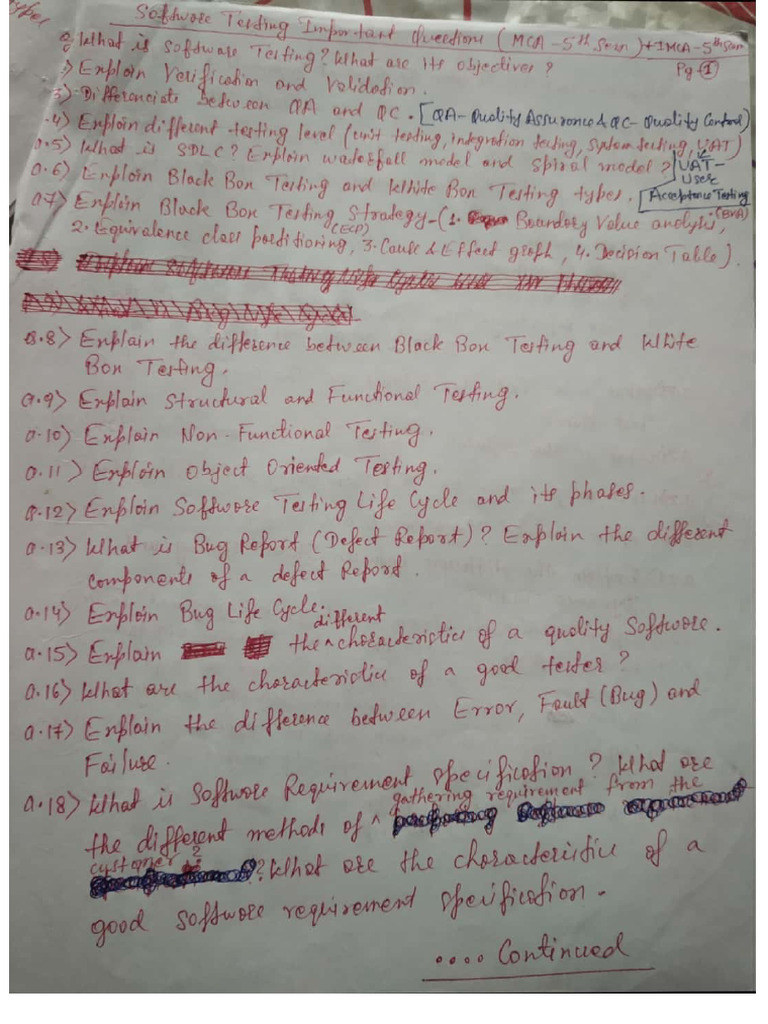 Software Testing Important Questions (MCA-5th Sem)+IMCA-5th Sem
Pg-1
Q What is software Testing? What are its objectives?
2) Explain Verification and Validation.
3) Differenciate between QA and QC. [QA-Quality Assurance & QC-Quality Control)
.4) Explain different testing level (unit testing, integration testing, system testing, UAT)
Q.5) What is SDLC? Explain waterfall model and spiral model?
UAT-
User
Acceptance Testing
Q.6) Explain Black Box Testing and White Box Testing types.
Q7) Explain Black Box Testing Strategy-(1. Boundary Value analysis, (BVA)
2. Equivalence class partitioning, (ECP) 3. Cause & Effect graph, 4. Decision Table).
Q.8) Explain the difference between Black Box Testing and White
Box Testing.
Q.9) Explain Structural and Functional Testing.
Q.10) Explain Non-Functional Testing.
Q.11) Explain Object Oriented Testing.
Q.12) Explain Software Testing Life Cycle and its phases.
Q.13) What is Bug Report (Defect Report)? Explain the different
components of a defect Report.
Q.14) Explain Bug Life Cycle.
Q.15) Explain the different characteristics of a quality Software.
Q.16) What are the characteristics of a good tester?
Q.17) Explain the difference between Error, Fault (Bug) and
Failure.
Q.18) What is Software Requirement Specification? What are
the different methods of gathering requirement from the
customer? What are the characteristics of a
good software requirement specification.
.... Continued